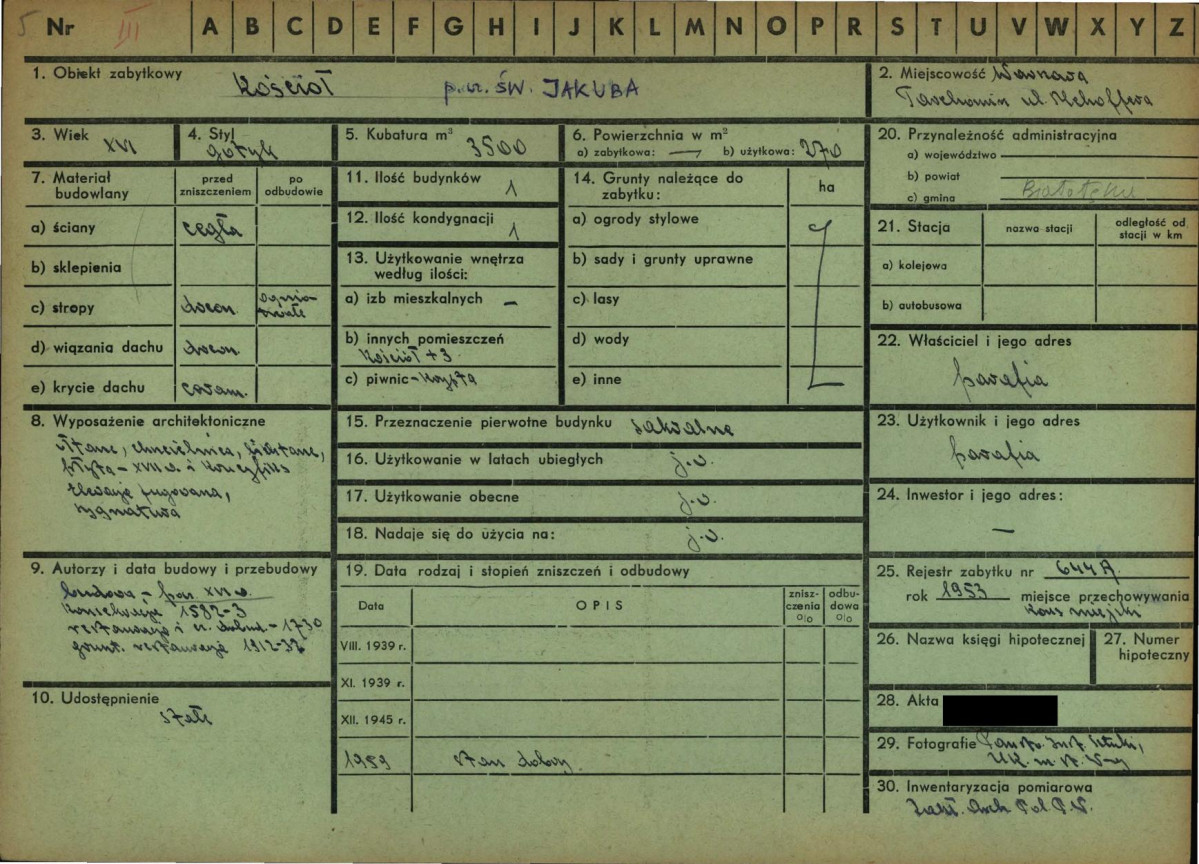 5 Nr III A B C D E F G H I J K L M N O P R S T U V W X Y Z
1. Obiekt zabytkowy Kościół p.w. ŚW. JAKUBA
2. Miejscowość Warszawa
Tarchomin ul. Mehoffera
3. Wiek XVI
4. Styl gotyk
5. Kubatura m³ 3500
6. Powierzchnia w m²
a) zabytkowa: — b) użytkowa: 270
20. Przynależność administracyjna
a) województwo
b) powiat
c) gmina Białołęka
7. Materiał budowlany
przed zniszczeniem
po odbudowie
a) ściany cegła
b) sklepienia
c) stropy drewn. ognio-
trwałe
d) wiązania dachu drewn.
e) krycie dachu ceram.
11. Ilość budynków 1
12. Ilość kondygnacji 1
13. Użytkowanie wnętrza
według ilości:
a) izb mieszkalnych –
b) innych pomieszczeń
Kościół + 3
c) piwnic – krypta
14. Grunty należące do
zabytku:
ha
a) ogrody stylowe
b) sady i grunty uprawne
c) lasy
d) wody
e) inne
21. Stacja
nazwa stacji
odległość od
stacji w km
a) kolejowa
b) autobusowa
22. Właściciel i jego adres
parafia
8. Wyposażenie architektoniczne
ołtarz, chrzcielnica,
płyta – XVII w. i krucyfiks
elewacja fugowana,
sygnatura
15. Przeznaczenie pierwotne budynku sakralne
16. Użytkowanie w latach ubiegłych j.w.
17. Użytkowanie obecne j.w.
18. Nadaje się do użycia na: j.w.
23. Użytkownik i jego adres
parafia
24. Inwestor i jego adres:
—
9. Autorzy i data budowy i przebudowy
budowa – pocz. XVI w.
konsekracja 1582-3
restauracja i 1730
grunt. restauracja 1912-32
10. Udostępnienie
stałe
19. Data rodzaj i stopień zniszczeń i odbudowy
Data
OPIS
znisz-
czenia
%
odbu-
dowa
%
VIII. 1939 r.
XI. 1939 r.
XII. 1945 r.
1959 stan dobry
25. Rejestr zabytku nr 644 A
rok 1953 miejsce przechowywania
Kons. miejski
26. Nazwa księgi hipotecznej
27. Numer
hipoteczny
28. Akta
29. Fotografie Państw. Inst. Sztuki,
U.K. m. st. W-wy
30. Inwentaryzacja pomiarowa
Zakł. Arch. Pol. P.W.